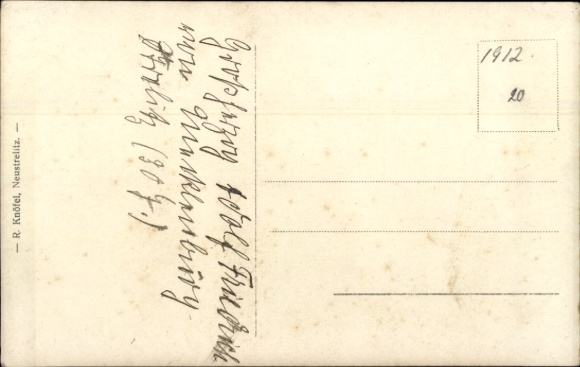 Großherzog Adolf Friedrich
von Mecklenburg-
Strelitz (30 J.)
1912.
20
— R. Knöfel, Neustrelitz. —